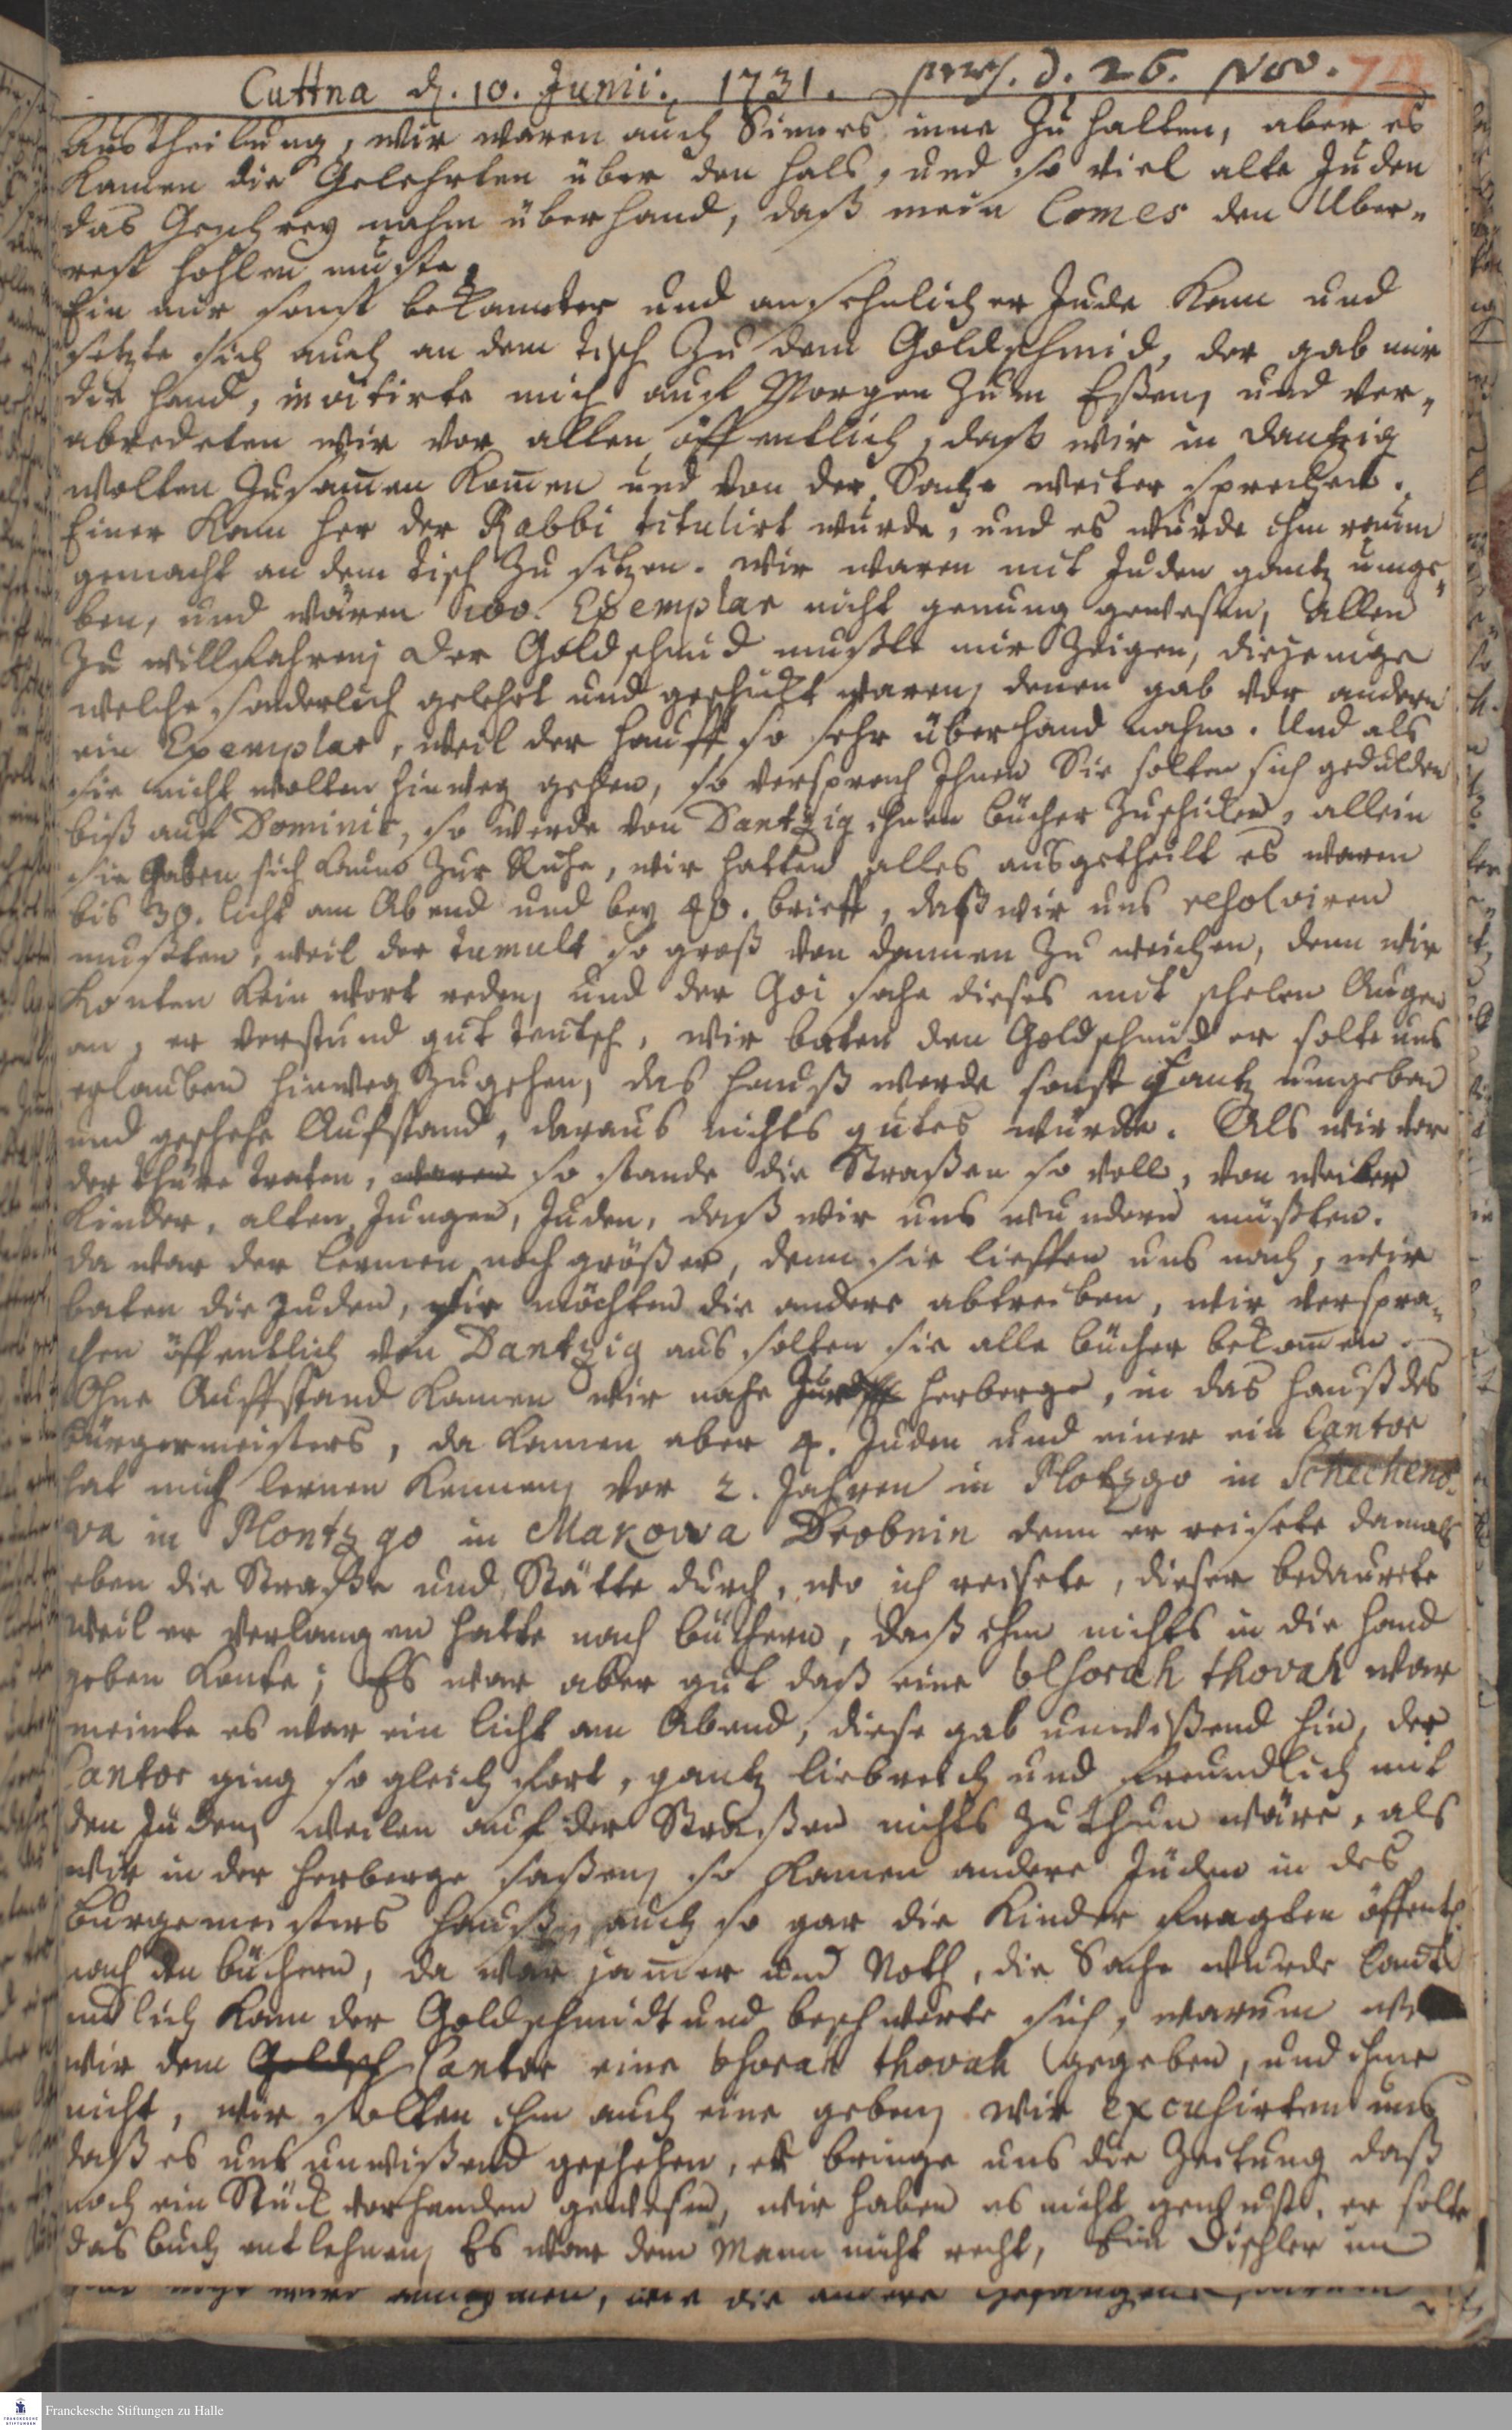 Cuttna d. 10. Junii. 1731. præs. d. 26. Nov. 74
Austheilung, wir waren auch Sinnes inne zu halten, aber es
kamen die Gelehrten über den Hals, und so viel alte Juden
das Geschrey nahm überhand, daß mein Comes den Uber-
rest hohlen muste.
Ein mir sonst bekannter und ansehnlicher Jude kam und
setzte sich auch an dem Tisch zu dem Goldschmid, der gab mir
die Hand, invitirte mich auf Morgen zum Eßen, und ver-
abredeten wir vor allen öffentlich, daß wir in Dantzig
wolten zusam̅en kom̅en und von der Sache weiter sprechen.
Einer kam her der Rabbi titulirt wurde, und es wurde ihm raum
gemacht an dem Tisch zu sitzen. Wir waren mit Juden gantz umge-
ben, und wären 100. Exemplar nicht genung gewesen, allen
zu willfahren, der Goldschmid mußte mir zeigen, diejenige
welche sonderlich gelehrt und geschickt waren, denen gab vor andern
ein Exemplar, weil der Hauff so sehr überhand nahm. Und als
sie nicht wolten hinweg gehen, so versprach Ihnen Sie solten sich gedulden
biß auf Dominic, so werde von Dantzig ihnen bücher zuschicken, allein
sie gaben sich kaum zur Ruhe, wir hatten alles ausgetheilt es waren
bis 30. licht am Abend und bey 40. brieff, daß wir uns resolviren
mußten, weil der tumult so groß von dannen zu weichen, denn wir
konten kein wort reden, und der Goi sahe dieses mit schelen Augen
an, er verstund gut teutsch, wir baten den Goldschmid er solte uns
erlauben hinweg zugehen, das Hauß werde sonst gantz umgeben
und geschehe Aufstand, daraus nichts gutes würde. Als wir vor
der thüre traten, waren so stande die Straßen so voll, von weiber
Kinder, alten, Jungen, Juden, daß wir uns wundern müßten.
da war der lermen noch größer, denn sie lieffen uns nach, wir
baten die Juden, sie möchten die andere abtreiben, wir verspra-
chen öffentlich von Dantzig aus solten sie alle bücher bekom̅en.
Ohne Auffstand kamen wir nahe zur herberge, in das Hauß des
Bürgermeisters, da kamen aber 4. Juden und einer ein Cantor
hat mich lernen kennen vor 2. Jahren in Plotzgo in Schecheno-
va in Plontzgo in Makowa Drobnin denn er reisete damals
eben die Straße und Stätte durch, wo ich reisete, dieser bedaurete
weil er verlangen hatte nach büchern, daß ihm nichts in die Hand
geben konte; Es war aber gut daß eine bsorah thovah war
meinte es war ein licht am Abend, diese gab unwißend hin, der
Cantor ging so gleich fort, gantz liebreich und freundlich mit
den Juden, weilen auf der Straßen nichts zu thun wäre, als
wir in der Herberge saßen, so kamen andere Juden in des
Burgemeisters Hauß, auch so gar die Kinder fragten öffentl.
nach den büchern, da war jam̅er und Noth, die Sache wurde laut
endlich kam der Goldschmidt und beschwerte sich, warum
wir dem Goldsch Cantor eine bsorah thovah gegeben, und ihme
nicht, wir solten ihm auch eine geben, wir excusirten uns
daß es uns unwißend geschehen, er bringe uns die Zeitung daß
noch ein Stück vorhanden gewesen, wir haben es nicht gewust, er solte
das buch entlehnen, Es war dem Mann nicht recht, Ein Dischler
die andere
Franckesche Stiftungen zu Halle